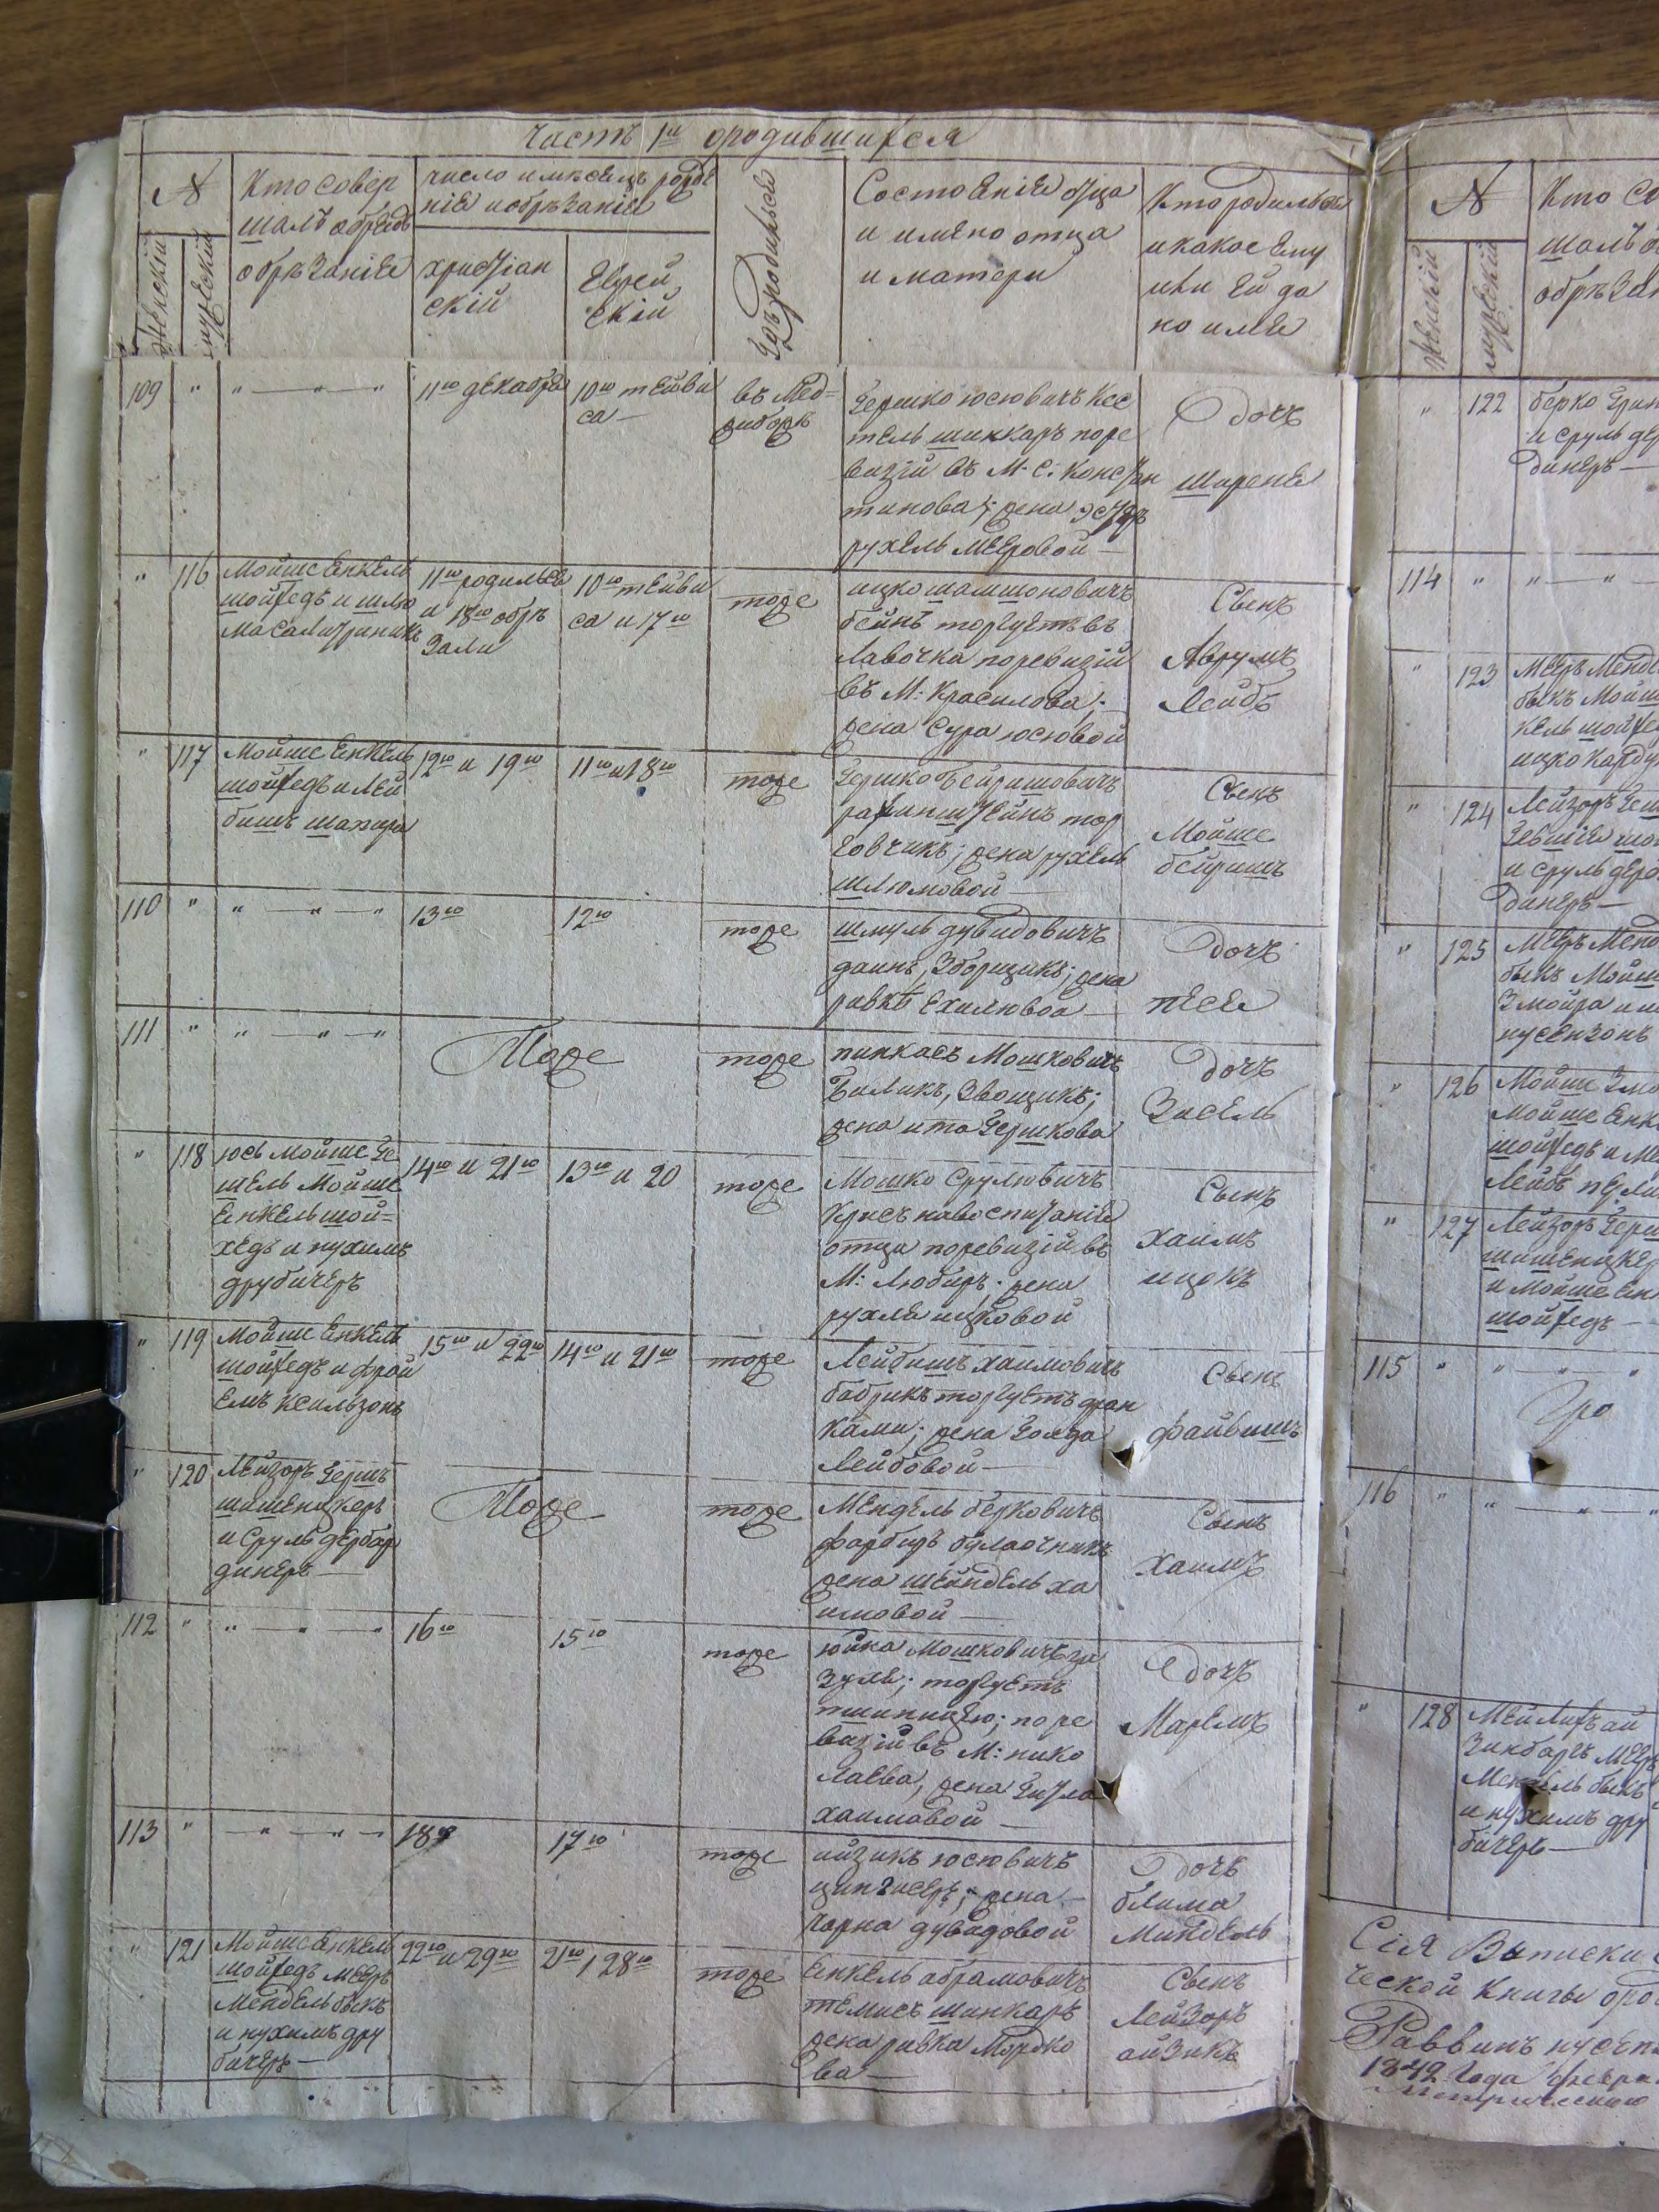 Часть 1я ородившихся
№
Кто совер
шалъ обрядъ
обрѣзаніе
число имѣсяцъ рожде
ніе иобрѣзаніе
Состоеніе отца
и имено отца
и матери
Кто родился
икакое Ему
или Ей да
но имя
Женскій
мужескій
христіан
скій
Еврей
скій
Гдѣ родился
109 " " — " — "
11го декабря
10го тейви
са —
въ Мед=
жибожѣ
Гершко юсювичъ Кес
тель шинкаръ поре
визіи въ М. С. Констан
тинова; жена Эстеръ
рухель Мееровой —
дочь
ширенe
" 116
Мойше Енкель
шойхедъ и шлю
ма
11го родился
и 18го обрѣ
зали
10го тейви
са и 17го
тоже
ицко шамшоновичъ
бейнъ торгуетъ въ
лавочка поревизіи
въ М: Красилова;
жена Сура юсювой
Сынъ
Аврумъ
Лейбъ
" 117
Мойше Енкель
шойхедъ и Лей
бишъ шахира
12го и 19го
11го и 18го
тоже
Гершко Бейришовичъ
рахинштейнъ тор
говчикъ; жена рухель
шлюмовой —
Сынъ
Мойше
бейришъ
110 " " — " — "
13го
12го
тоже
шмуль дувидовичъ
даинъ, Зборщикъ; жена
ривка Ехилювоа —
дочь
песе
111 " " — " — "
Тоже
тоже
пинкасъ Мошковичъ
Биликъ, Звощикъ;
жена ита Гершкова
дочь
Зисель
" 118
юсь Мойше Ге
шель Мойше
Енкель шой=
хедъ и нухимъ
друбичеръ
14го и 21го
13го и 20
тоже
Мошко Срулювичъ
Крисъ навоспитаніе
отца поревизіи въ
М: Любиръ; жена
рухля ицковой
Сынъ
хаимъ
ицокъ
" 119
Мойше Енкель
шойхедъ и фрой
емъ Ксильзонъ
15го и 22го
14го и 21го
тоже
Лейбишъ хаимовичъ
бабрикъ торгуетъ дран
ками; жена Голда
Лейбовой —
Сынъ
файвишъ
" 120
Лейзоръ Гершъ
шишеницкеръ
и Сруль дербар
динеръ —
Тоже
тоже
Мендель берковичъ
фарбидъ булаочникъ
жена шейндель ха
имовой —
Сынъ
хаимъ
112 " " — " — "
16го
15го
тоже
юйна Мошковичъ
зуле; торгуетъ
пшиницею; поре
визіи въ М: нико
лаева, жена Гитла
хаимовой —
дочь
Маремъ
113 " — " — " —
18
17го
тоже
ийзикъ юсювичъ
цингисеръ; жена —
чарна дувидовой
дочь
блима
Миндель
" 121
Мойше Енкель
шойхедъ Мееръ
Мендель быкъ
и нухимъ дру
бичеръ —
22го и 29го
21го и 28го
тоже
Енкель абрамовичъ
темисъ шинкаръ
жена ривка Мордко
ва —
Сынъ
Лейзоръ
айзикъ
№
Кто со
шалъ о
обрѣзан
Женскій
мужескій
" 122
берко Грин
и сруль дер
динеръ —
114 " " — " —
" 123
Мееръ Менде
быкъ Мойш
кель шойхе
ицко
" 124
Лейзоръ Герш
и сруль дерб
динеръ —
" 125
Мееръ Менд
быкъ Мойш
Змойра и
нусензонъ
" 126
Мойше Змо
Мойше Енк
шойхедъ и Ме
Лейбъ
" 127
Лейзоръ Герш
шишеницкер
и Мойше Ен
шойхедъ —
115 " " — " — "
116 " " — " — "
" 128
Мейлихъ ай
Зинбаргъ Меер
Мендель быкъ
и нухимъ дру
бичеръ —
Сія Выписки
ческой Книги оро
Раввинъ нусен
1842 Года февра